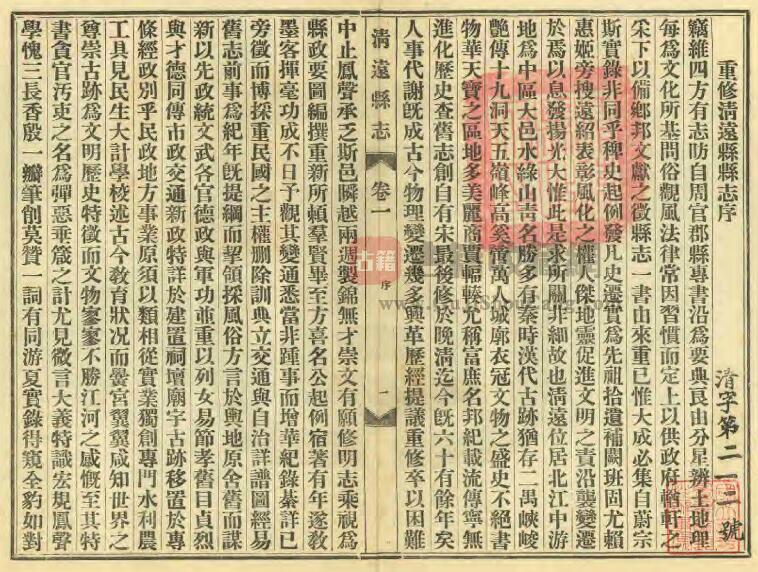 重修清遠縣縣志序
竊維四方有志昉自周官郡縣專書沿爲要典良由分星辨土地理
每爲文化所基問俗觀風法律常因習慣而定上以供政府輶軒之
采下以備鄉邦文獻之徵縣志一書由來重已惟大成必集自蔚宗
斯實錄非同乎稗史起例發凡史遷實爲先祖拾遺補闕班固尤賴
惠姬旁搜遠紹表彰風化之權人傑地靈促進文明之責沿襲變遷
於焉以息發揚光大惟此是求所關非細故也淸遠位居北江中游
地爲中區大邑水綠山靑名勝多有秦時漢代古跡猶存二禺峽峻
艷傳十九洞天五嶺峰高奚啻萬人城廓衣冠文物之盛史不絕書
物華天寶之區地多美麗商賈輻輳允稱富庶名邦紀載流傳寧無
進化歷史查舊志創自有宋最後修於晚淸迄今旣六十有餘年矣
人事代謝旣成古今物理變遷幾多興革歷經提議重修卒以困難
清遠縣志
卷一
序
一
中止鳳聲承乏斯邑瞬越兩週製錦無才崇文有願修明志乘視爲
縣政要圖編撰重新所賴羣賢畢至方喜名公起例宿著有年遂敎
墨客揮毫功成不日予觀其變通悉當非踵事而增華紀錄綦詳已
旁徵而博採重民國之主權刪除訓典立交通與自治詳譜圖經易
舊志前事爲紀年旣提綱而挈領採風俗方言於輿地原舍舊而謀
新以先政統文武各官德政與軍功並重以列女易節孝舊目貞烈
與才德同傳市政交通新政特詳於建置祠壇廟宇古跡移置於專
條經政別乎民政地方事業原須以類相從實業獨創專門水利農
工具見民生大計學校述古今敎育狀况而黌宮翼翼咸知世界之
尊崇古跡爲文明歷史特徵而文物寥寥不勝江河之感慨至其特
書貪官汚吏之名爲彈惡垂箴之計尤見微言大義特識宏規鳳聲
學愧三長香殿一瓣筆創莫贊一詞有同游夏實錄得窺全豹如對
清字第二一二號
古籍